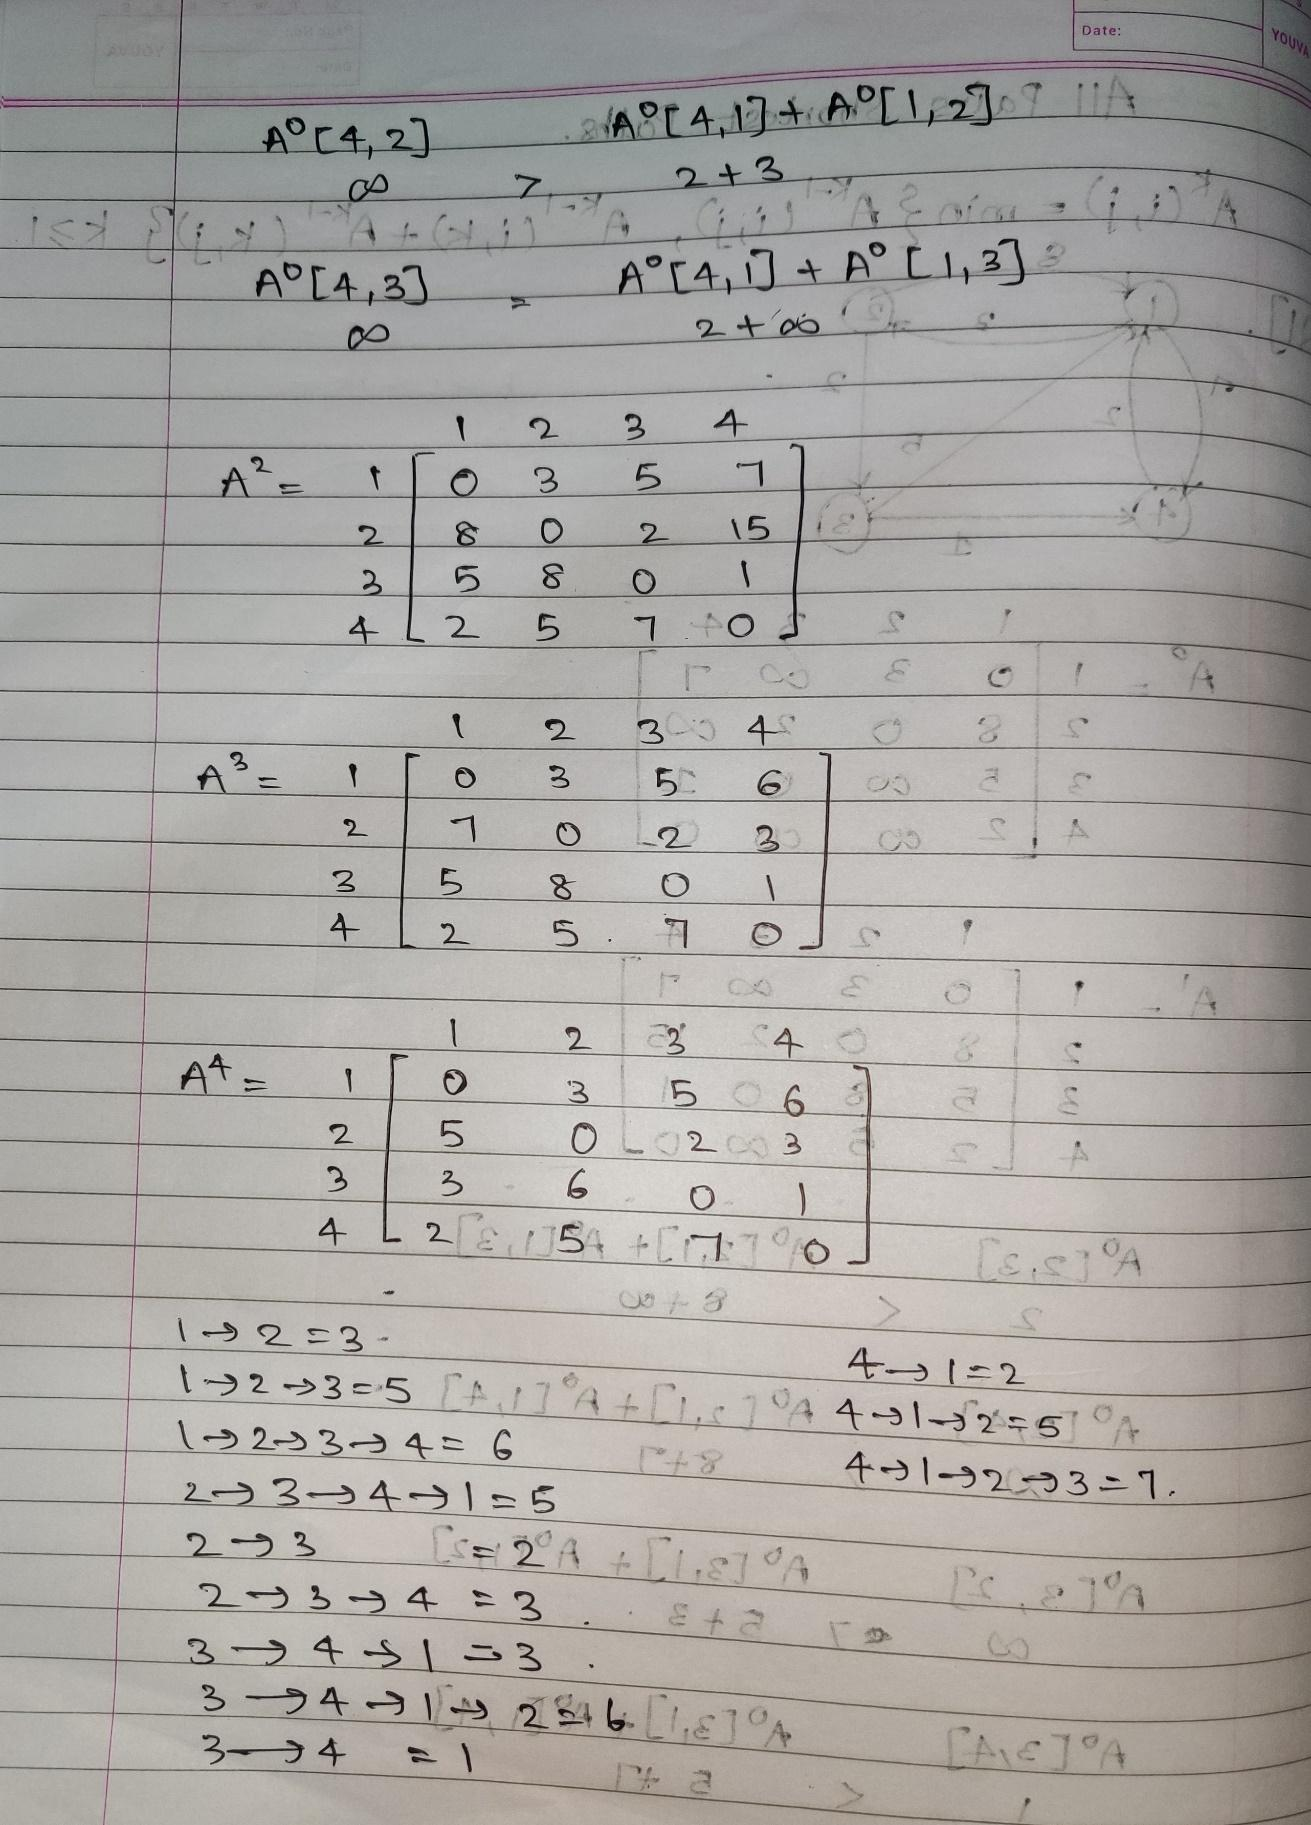 Date:
YOUVA
A⁰[4,2] A⁰[4,1] + A⁰[1,2]
∞ > 2 + 3
A⁰[4,3] = A⁰[4,1] + A⁰[1,3]
∞ 2 + ∞
1 2 3 4
A² = 1 [ 0 3 5 7 ]
2 8 0 2 15
3 5 8 0 1
4 2 5 7 0
1 2 3 4
A³ = 1 [ 0 3 5 6 ]
2 7 0 2 3
3 5 8 0 1
4 2 5 7 0
1 2 3 4
A⁴ = 1 [ 0 3 5 6 ]
2 5 0 2 3
3 3 6 0 1
4 2 5 7 0
1 → 2 = 3
1 → 2 → 3 = 5
1 → 2 → 3 → 4 = 6
2 → 3 → 4 → 1 = 5
2 → 3 = 2
2 → 3 → 4 = 3
3 → 4 → 1 = 3
3 → 4 → 1 → 2 = 6
3 → 4 = 1
4 → 1 = 2
4 → 1 → 2 = 5
4 → 1 → 2 → 3 = 7.